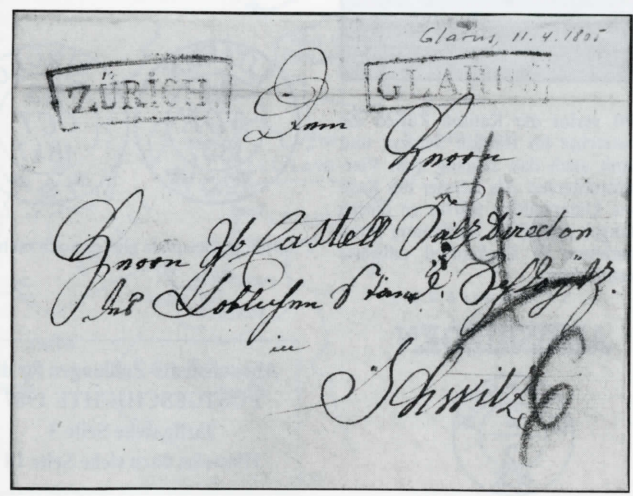 Glarus, 11.4.1805
ZÜRICH
GLARUS
Dem Herrn
Herrn Jb Castell Salz Director
des Loblichen Stand Schwytz.
in
Schwitz
6